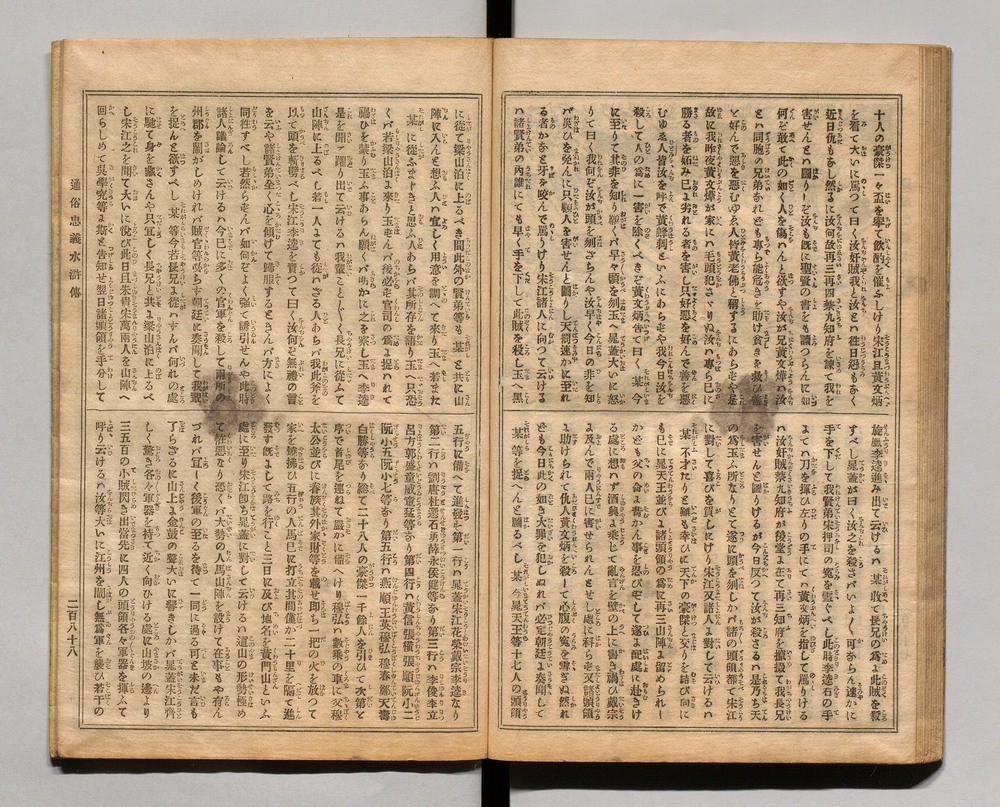 十人の豪傑一々盃を舉て飲酌を催ふしけり宋江且黄文炳
を看て大いに罵つて曰く汝奸賊我と汝とハ往日恐もなく
近日仇もなし然るに汝何故再三再四蔡九知府を諫て我を
害せんとハ圖りしぞ汝も既に聖賢の書をも讀つらんに如
何ぞ敢て此の如く人を傷ハんと欲すや汝が兄黄文燁ハ汝
とハ同胞の兄弟なれども專ら能危きを助け貧きを救ひ善
を好んで惡を惡むゆゑ人皆黄老佛と稱するにあらずや是
故に我昨夜黄文燁が家にハ毛頭犯さゞりぬ汝ハ專ら己に
勝る者を妬み己に劣れる者を害し只好惡を好んで善を惡
むゆゑ人皆汝を呼で黄蜂刺といふにあらずや我今日汝を
殺して人の爲に一害を除くべきぞ黄文炳告て曰く某今
に至つて其非を知り願くハ早々頭を刎玉へ晁蓋大いに怒
りて曰く我何ぞ汝が頭を刎ざらんや汝早く今日の非を知
らバ災ひを免んに只顧人を害せんと圖りし天罰速かに至れ
る者かなと牙を咬んで罵りけり宋江諸人に向つて云ける
ハ諸賢弟の内誰にても早く手を下して此賊を殺し玉へ黑
旋風李逵進み出て云けるハ某敢て長兄の爲に此賊を殺
すべし晁蓋が曰く汝之を殺さバいよ〱可ならん速かに
手を下して我賢弟宋押司の寃を雪ぐべし此時李逵右の手
にハ刀を揮ひ左りの手にてハ黄文炳を指して罵りける
ハ汝奸賊蔡九知府が後堂に在て再三知府を攛掇て我長兄
を害せんと圖りけるが今日反つて汝が殺さるゝハ是乃ち天
の爲玉ふ所なりとて遂に頭を刎しかバ諸の頭領都て宋江
に對して喜びを賀しにけり宋江又諸人に對して云けるハ
某不才たりと雖も幸ひに天下の豪傑と交りを結び向に
も已に晁天王並びに諸頭領の爲に再三山陣に留められし
かども父の命に背かん事を恐びずして遂に配處に赴きけ
る處に想ハず酒興に乘じて亂言を壁の上に書き禍ひ戴宗
に及んで兩人共に害せられんとせし處に料らず又諸頭領
に助けられて仇人黄文炳を殺して心腹の寃を雪ぎぬ然れ
ども今日此の如き大罪を犯しぬれバ必定朝廷に奏聞して
某等を捉へんと圖るべし某今晁天王等十七人の頭領
に從て梁山泊に上るべき間此外の賢弟等も某と共に山
陣に入んと想ふ人ハ宜しく用意を調へて來り玉へ若また
某に從ふまじきと思ふ人あらバ其所存を語り玉へ只恐
くハ若梁山泊に來り玉ずんバ後必ず官司の爲に捉ハれて
禍ひを蒙り玉ふ事あらん願くハ明かに之を察し玉へ李逵
是を聞て躍り出て云けるハ我輩ことごとく長兄に從ふて
山陣に上るべし若一人にても從ハざる人あらバ我此斧を
以て頭を斬劈べし宋江李逵を責つて曰く汝何ぞ無禮の言
を云や諸賢弟ハ心を傾けて歸服するときんバ方によく
同徃すべし若然らずんバ如何ぞよく強て誘引せんや此時
諸人議論して云けるハ今巳に多くの官軍を殺して兩所の
州郡を鬧がしめければ賊官等必らず朝廷に奏聞して我輩
を捉んと欲すべし某等今若長兄に從ハずんバ何れの處
に馳て身を竄さんや只宜しく長兄と共に梁山泊に上るべ
し宋江之を聞て大いに悅び此日且朱貴宋萬兩人を山陣へ
回らしめて吳學究等に斯と告知せ翌日諸頭領を手分して
五行に備へて進發す第一行ハ晁蓋宋江花榮戴宗李逵なり
第二行ハ劉唐杜遷石勇薛永侯健等なり第三行ハ李俊李立
呂方郭盛童威童猛等なり第四行ハ黄信張橫張順阮小二
阮小五阮小七等なり第五行ハ燕順王英穆弘穆春鄭天壽
白勝等なり總て二十八人の豪傑一千餘人を引ひて次第と
序で首尾を連ねて嚴かに備へけり穆弘ハ數乘の車に父穆
太公並びに眷族其外家財等を載せ即ち一把の火を放つて
家を燒拂ひ五行の人馬巳に打立其間僅か二十里を隔て進
發す既にして路を行こと三日に及び地名を黄門山といふ
處に至り宋江即ち晁蓋に對して云けるハ這山の形勢極め
て怪惡なり恐くハ大勢の人馬山陣を設けて在事もや有ん
づれバ宜しく後軍の至るを待て一同に過るべしと未だ言も
了らざるに山上に金鼓の聲大いに響きしかバ晁蓋宋江齊
しく驚き各々軍器を持て近く向ひける處に山坡の邊より
三五百の小賊閃き出當先に四人の頭領各々軍器を揮ふて
呼り云けるハ汝等大いに江州を鬧し無爲軍を襲ひ若干の
通俗忠義水滸傳
二百八十八